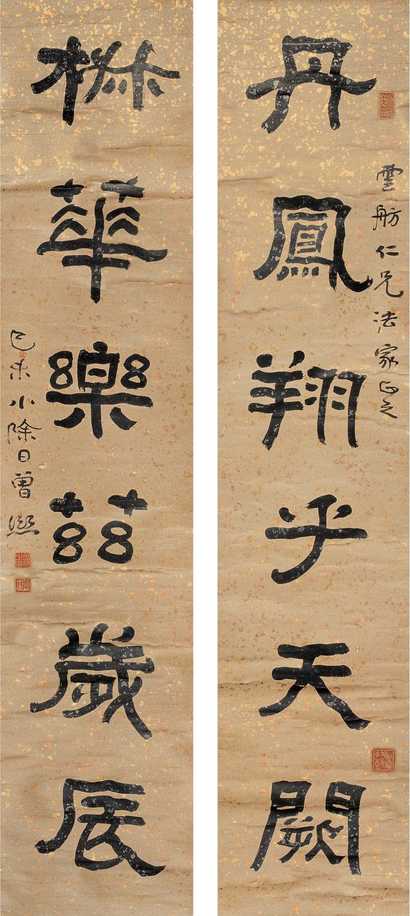 丹鳳翔乎天闕
雲舫仁兄法家正之
華樂茲歲辰
己未小除日曾熙